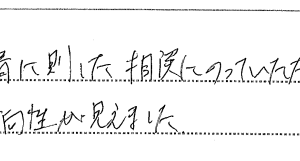 に則した相談にのっていただ
向性が見えました。